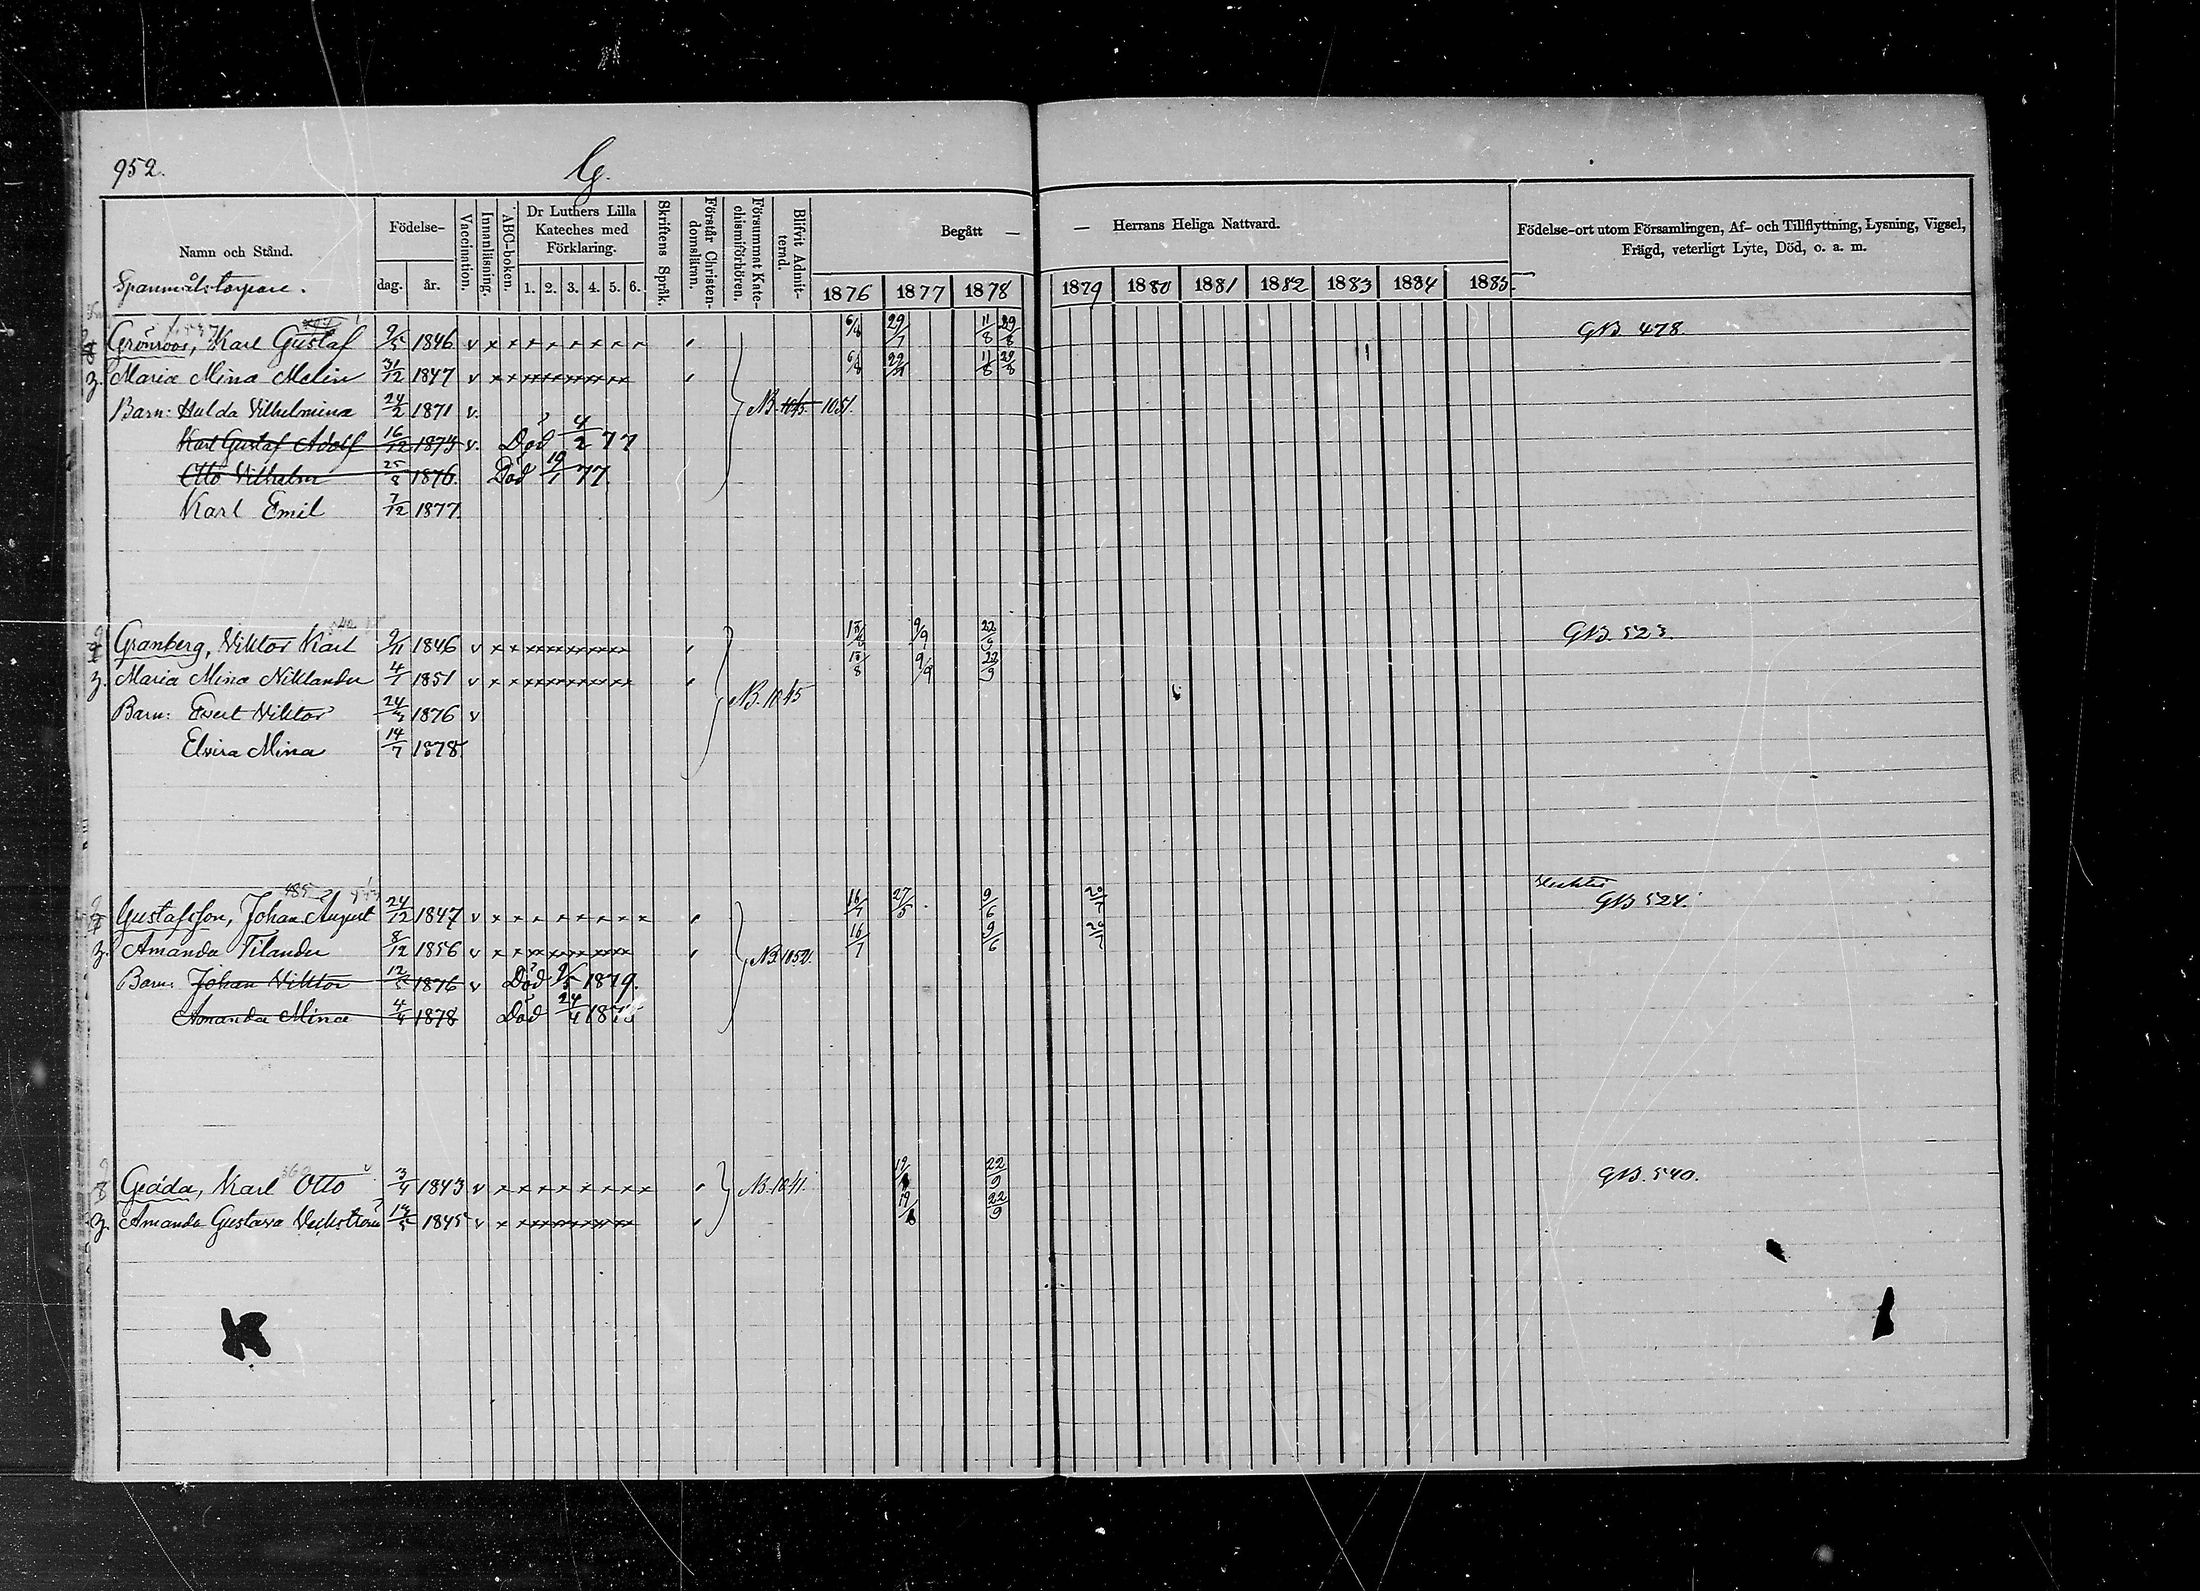 952.
G.
Namn och Stånd.
Födelse-
dag. år.
Vaccination.
Innanläsning.
ABC-boken.
Dr Luthers Lilla Kateches med Förklaring.
1. 2. 3. 4. 5. 6.
Skriftens Språk.
Förstår Christendomsläran.
Försummat Katechismiförhören.
Blifvit Admitterad.
Begått —
— Herrans Heliga Nattvard.
1876 1877 1878 1879 1880 1881 1882 1883 1884 1885.
Födelse-ort utom Församlingen, Af- och Tillflyttning, Lysning, Vigsel, Frägd, veterligt Lyte, Död, o. a. m.
Spanmålstorpare.
Grönroos, Karl Gustaf 9/5 1846 v 6/8 29/7 11/8 29/8 GB. 478.
Maria Mina Melin 31/12 1847 v 6/8 11/8 29/8
Barn: Hulda Vilhelmina 24/2 1871 v. NB. 1051.
Karl Gustaf Adolf 16/12 1873 v. Död 4/2 77
Otto Vilhelm 25/8 1876. Död 19/1 77.
Karl Emil 7/12 1877.
Granberg, Viktor Karl 9/11 1846 v 9/9 22/9 GB. 523.
Maria Mina Niklander 4/1 1851 v 9/9 22/9
Barn: Evert Viktor 1876 v NB. 1045
Elvira Mina 14/7 1878.
Gustafsson, Johan August 24/12 1847 v 16/7 27/5 9/6 20/7 GB 524.
Amanda Tilander 8/12 1856 v 16/7 9/6 20/7
NB. 1052.
Barn: Johan Viktor 12/5 1876 v Död 9/5 1879.
Amanda Mina 4/4 1878 Död 24/4
Gråda, Karl Otto 3/4 1843 v NB. 1041. 22/9 GB. 540.
Amanda Gustava Veckström 1845 v 22/9